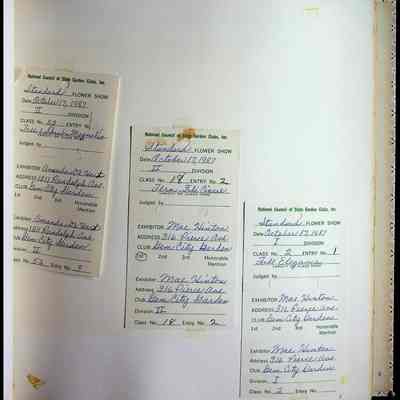 National Council of State Garden Clubs, Inc.
Standard FLOWER SHOW
Date October 17, 1987
II DIVISION
CLASS No. 52 ENTRY No.
Judged by
EXHIBITOR Amanda
ADDRESS 1811 Randolph Ave.
CLUB Gem City Gardens
Honorable
Mention
Exhibitor Amanda
Address 1811 Randolph Ave.
Gem City Gardens
II
No. 52 Entry No. 2
National Council of State Garden Clubs, Inc.
Standard FLOWER SHOW
Date October 17, 1987
II DIVISION
CLASS No. 18 ENTRY No. 2
Judged by
EXHIBITOR Mae Hinton
ADDRESS 316 Pierce Ave.
CLUB Gem City Garden
1st 2nd 3rd Honorable
Mention
Exhibitor Mae Hinton
Address 316 Pierce Ave.
Club Gem City Garden
Division II
Class No. 18 Entry No. 2
National Council of State Garden Clubs, Inc.
Standard FLOWER SHOW
Date October 17, 1987
I DIVISION
CLASS No. 2 ENTRY No. 1
Fall Elegance
Judged by
EXHIBITOR Mae Hinton
ADDRESS 316 Pierce Ave.
CLUB Gem City Gardens
1st 2nd 3rd Honorable
Mention
Exhibitor Mae Hinton
Address 316 Pierce Ave.
Club Gem City Gardens
Division I
Class No. 2 Entry No.